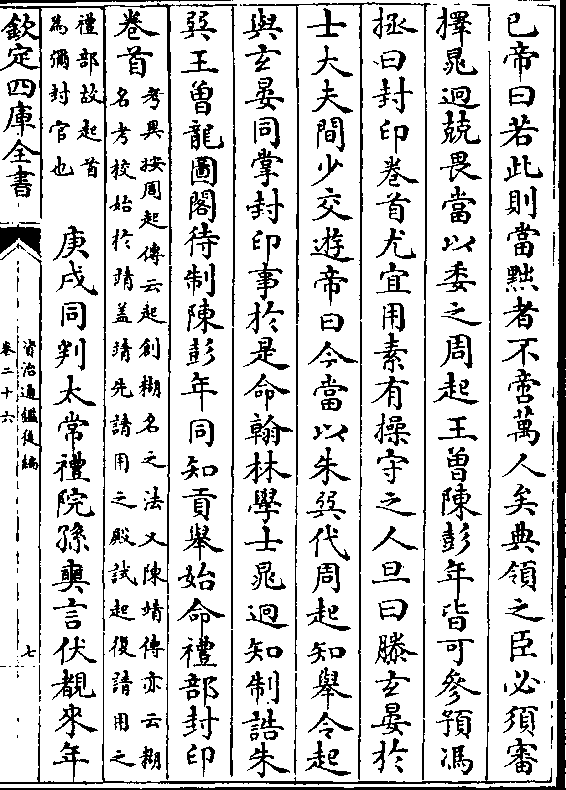 已帝曰若此則當黜者不啻萬人矣典領之臣必須審
擇晁迥兢畏當以委之周起王曾陳彭年皆可參預馮
拯曰封印卷首尤宜用素有操守之人旦曰滕玄晏於
士大夫間少交遊帝曰今當以朱巽代周起知舉令起
與玄晏同掌封印事於是命翰林學士晁迥知制誥朱
巽王曾龍圖閣待制陳彭年同知貢舉始命禮部封印
卷首
考異按周起傳云起創糊名之法又陳靖傳亦云糊
名考校始於靖盖靖先請用之殿試起復請用之
禮部故起首
為彌封官也
庚戌同判太常禮院孫奭言伏覩來年
欽定四庫全書
資治通鑑後編
卷二十六
七